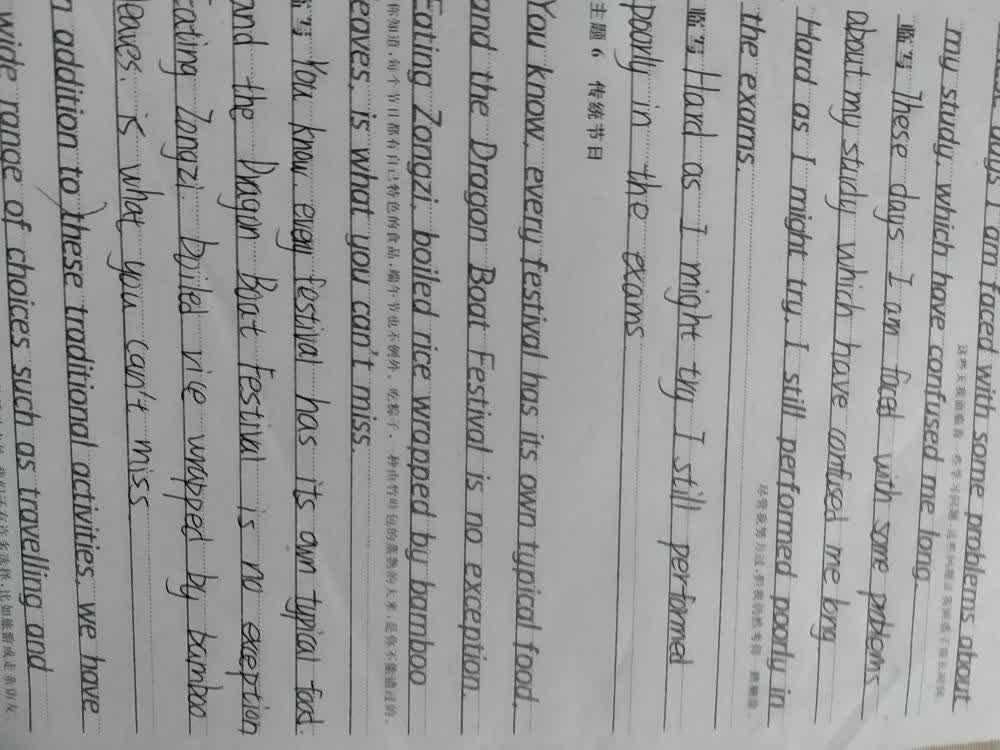 days I am faced with some problems about
my study, which have confused me long.
临写 These days I am faced with some problems
about my study which have confused me long
Hard as I might try, I still performed poorly in
the exams.
临写 Hard as I might try I still performed
poorly in the exams
主题 6 传统节日
You know, every festival has its own typical food,
and the Dragon Boat Festival is no exception.
Eating Zongzi, boiled rice wrapped by bamboo
eaves, is what you can't miss.
你知道,每个节日都有自己特色的食品,端午节也不例外。吃粽子,一种由竹叶包的蒸熟的大米,是你不能错过的。
临写 You know, every festival has its own typical food.
and the Dragon Boat Festival is no exception
Eating Zongzi. boiled rice wrapped by bamboo
leaves. is what you can't miss
n addition to these traditional activities, we have
wide range of choices such as travelling and